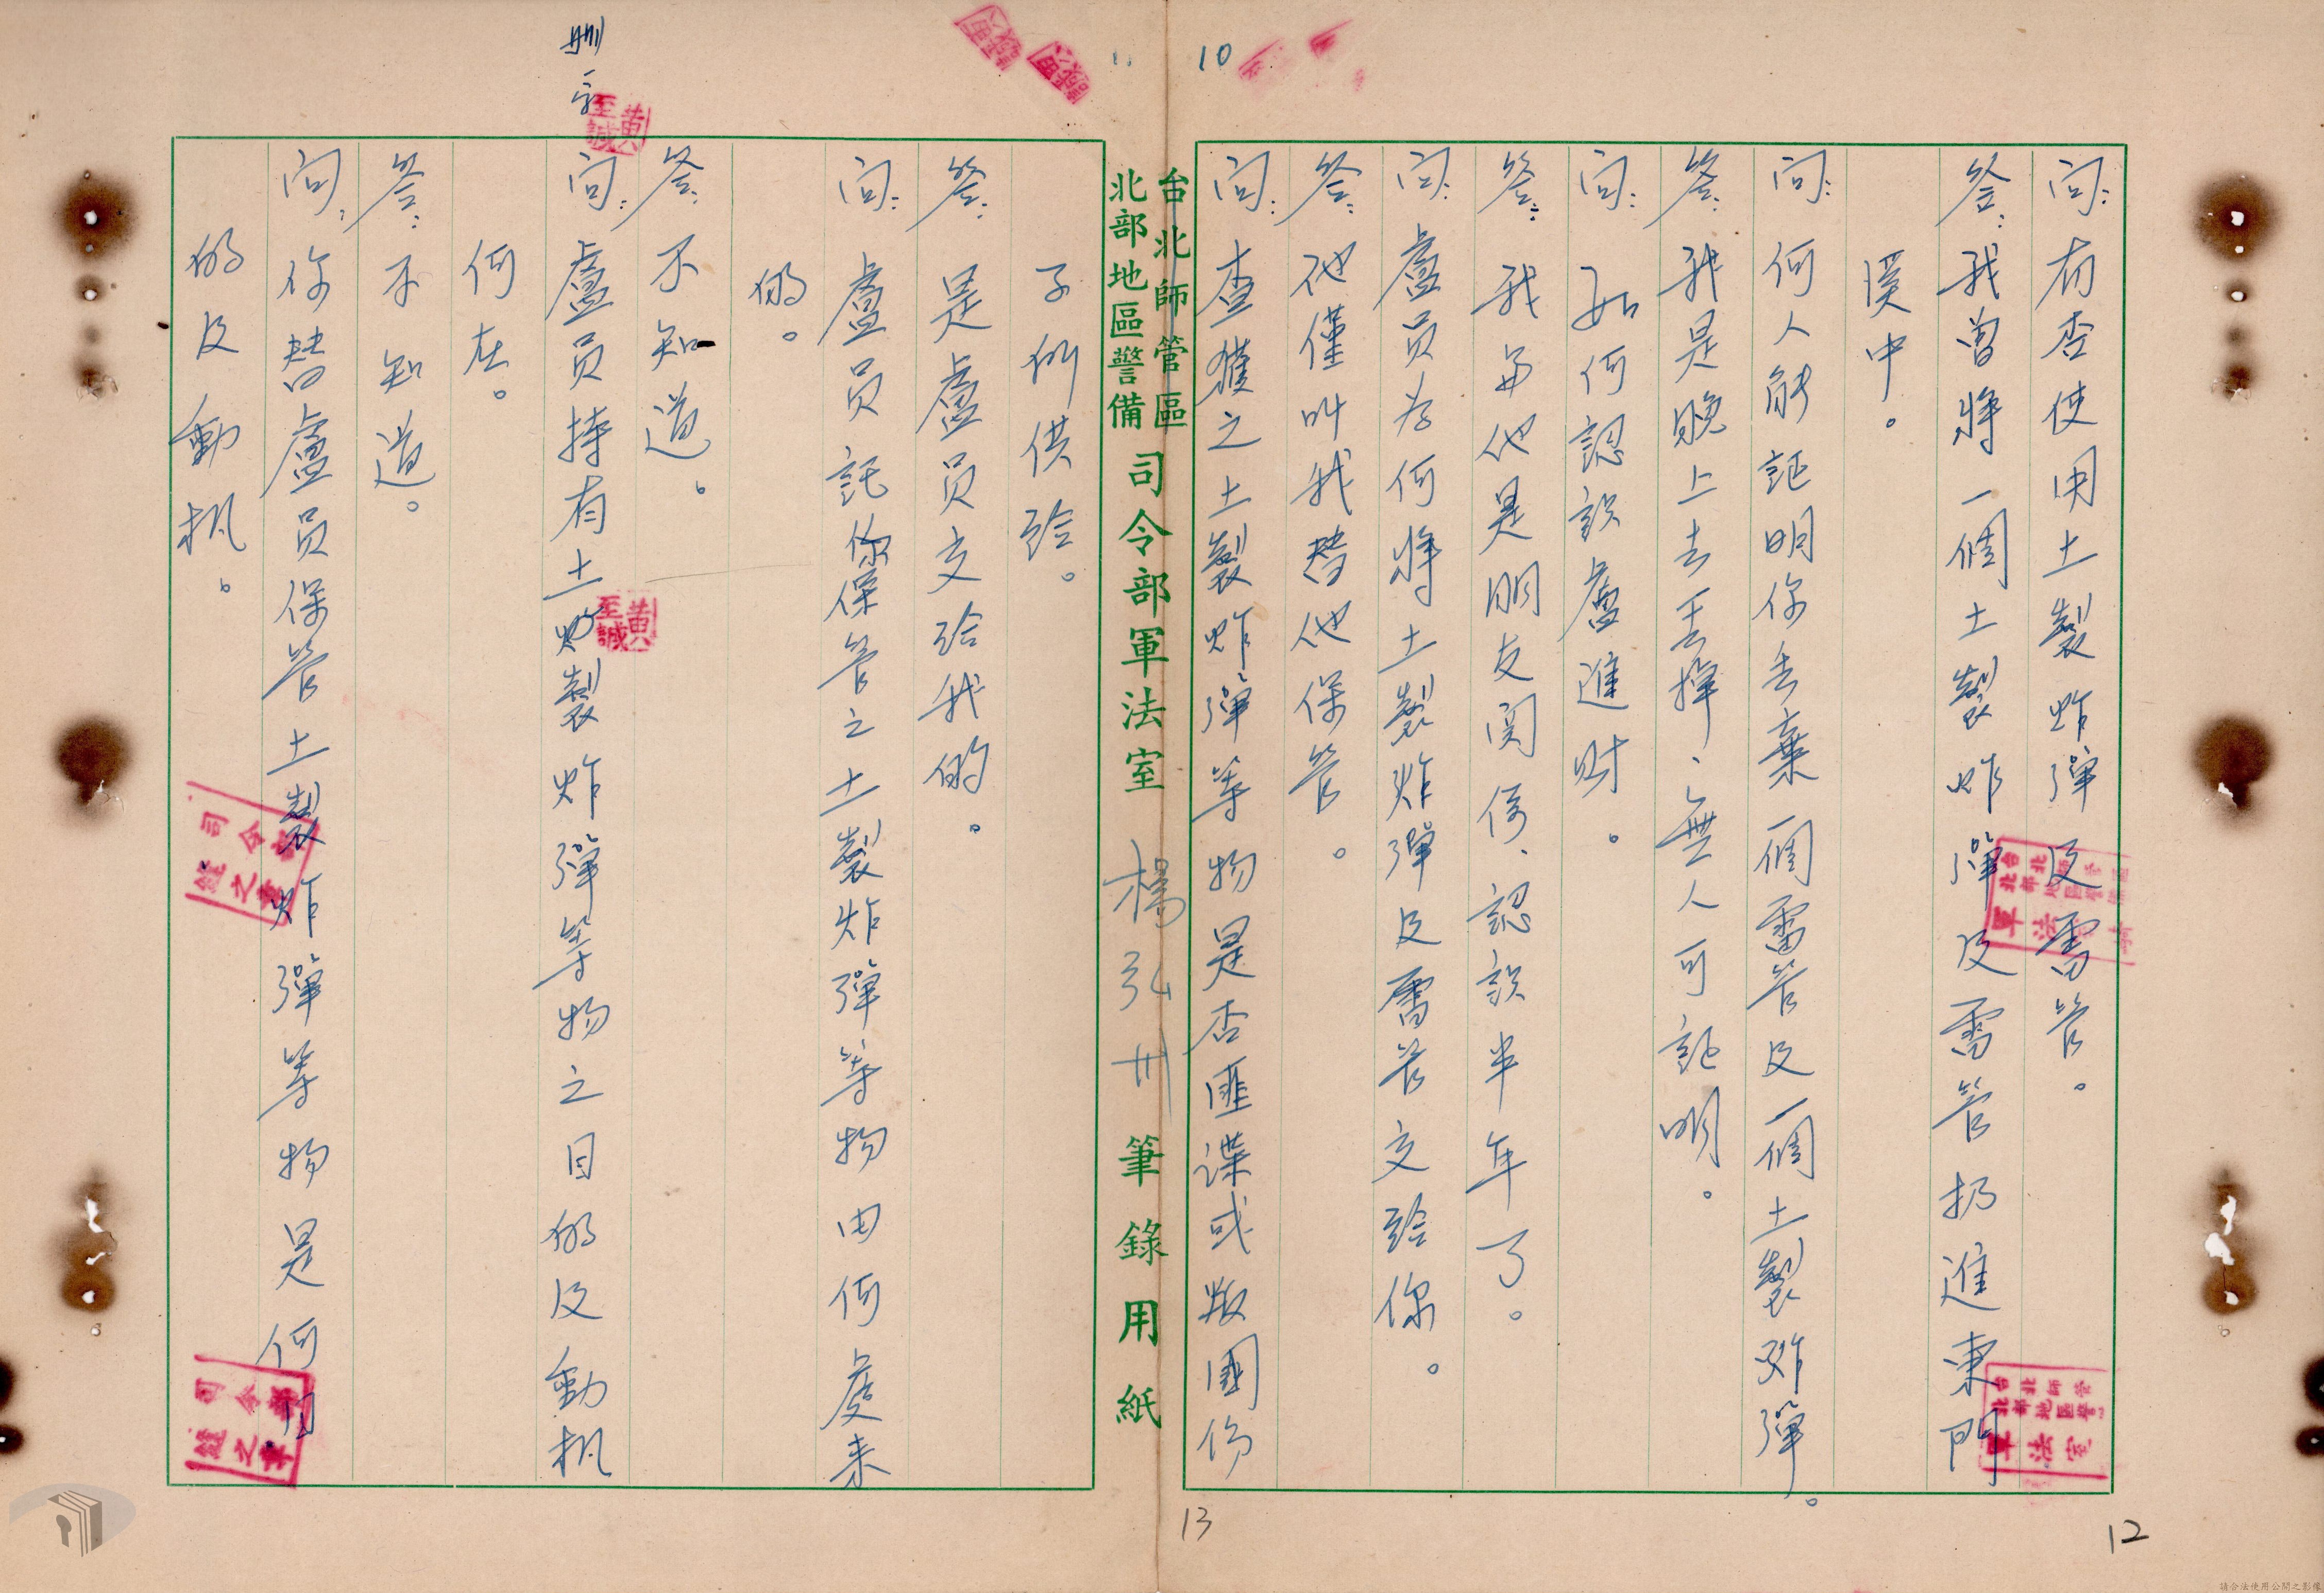 10
問：有否使用土製炸彈及雷管。
答：我曾將一個土製炸彈及雷管扔進東門
溪中。
問：何人能証明你丟棄一個雷管及一個土製炸彈。
答：我是晚上去丟掉、無人可証明。
問：如何認識盧進財。
答：我與他是朋友関係、認識半年了。
問：盧員為何將土製炸彈及雷管交給你。
答：他僅叫我替他保管。
問：查獲之土製炸彈等物是否匪諜或叛國份
台北師管區
北部地區警備
司令部軍法室 楊弘卅 筆錄用紙
子所供給。
答：是盧員交給我的。
問：盧員託你保管之土製炸彈等物由何處来
的。
答：不知道。
刪一字
黃至誠
問：盧員持有土製炸彈等物之目的及動机
黃至誠
何在。
答：不知道。
問：你替盧員保管土製炸彈等物是何目
的及動机。
13
12